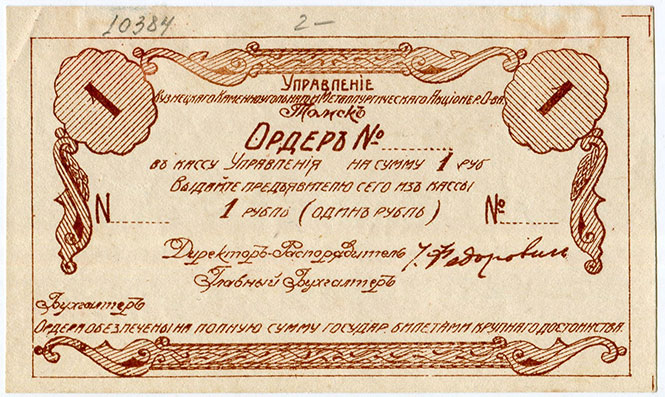 10384 2-
1 1
Управленіе
Кузнецкаго Каменноугольнаго и Металлургическаго Акціонер. О-ва.
Томскъ
Ордеръ №
въ кассу Управленія на сумму 1 руб
Выдайте предъявителю сего изъ кассы
N 1 рубль (одинъ рубль) №
Директоръ-Распорядитель Федорович
Главный Бухгалтеръ
Бухгалтеръ
Ордера обезпечены на полную сумму государ. билетами крупнаго достоинства.